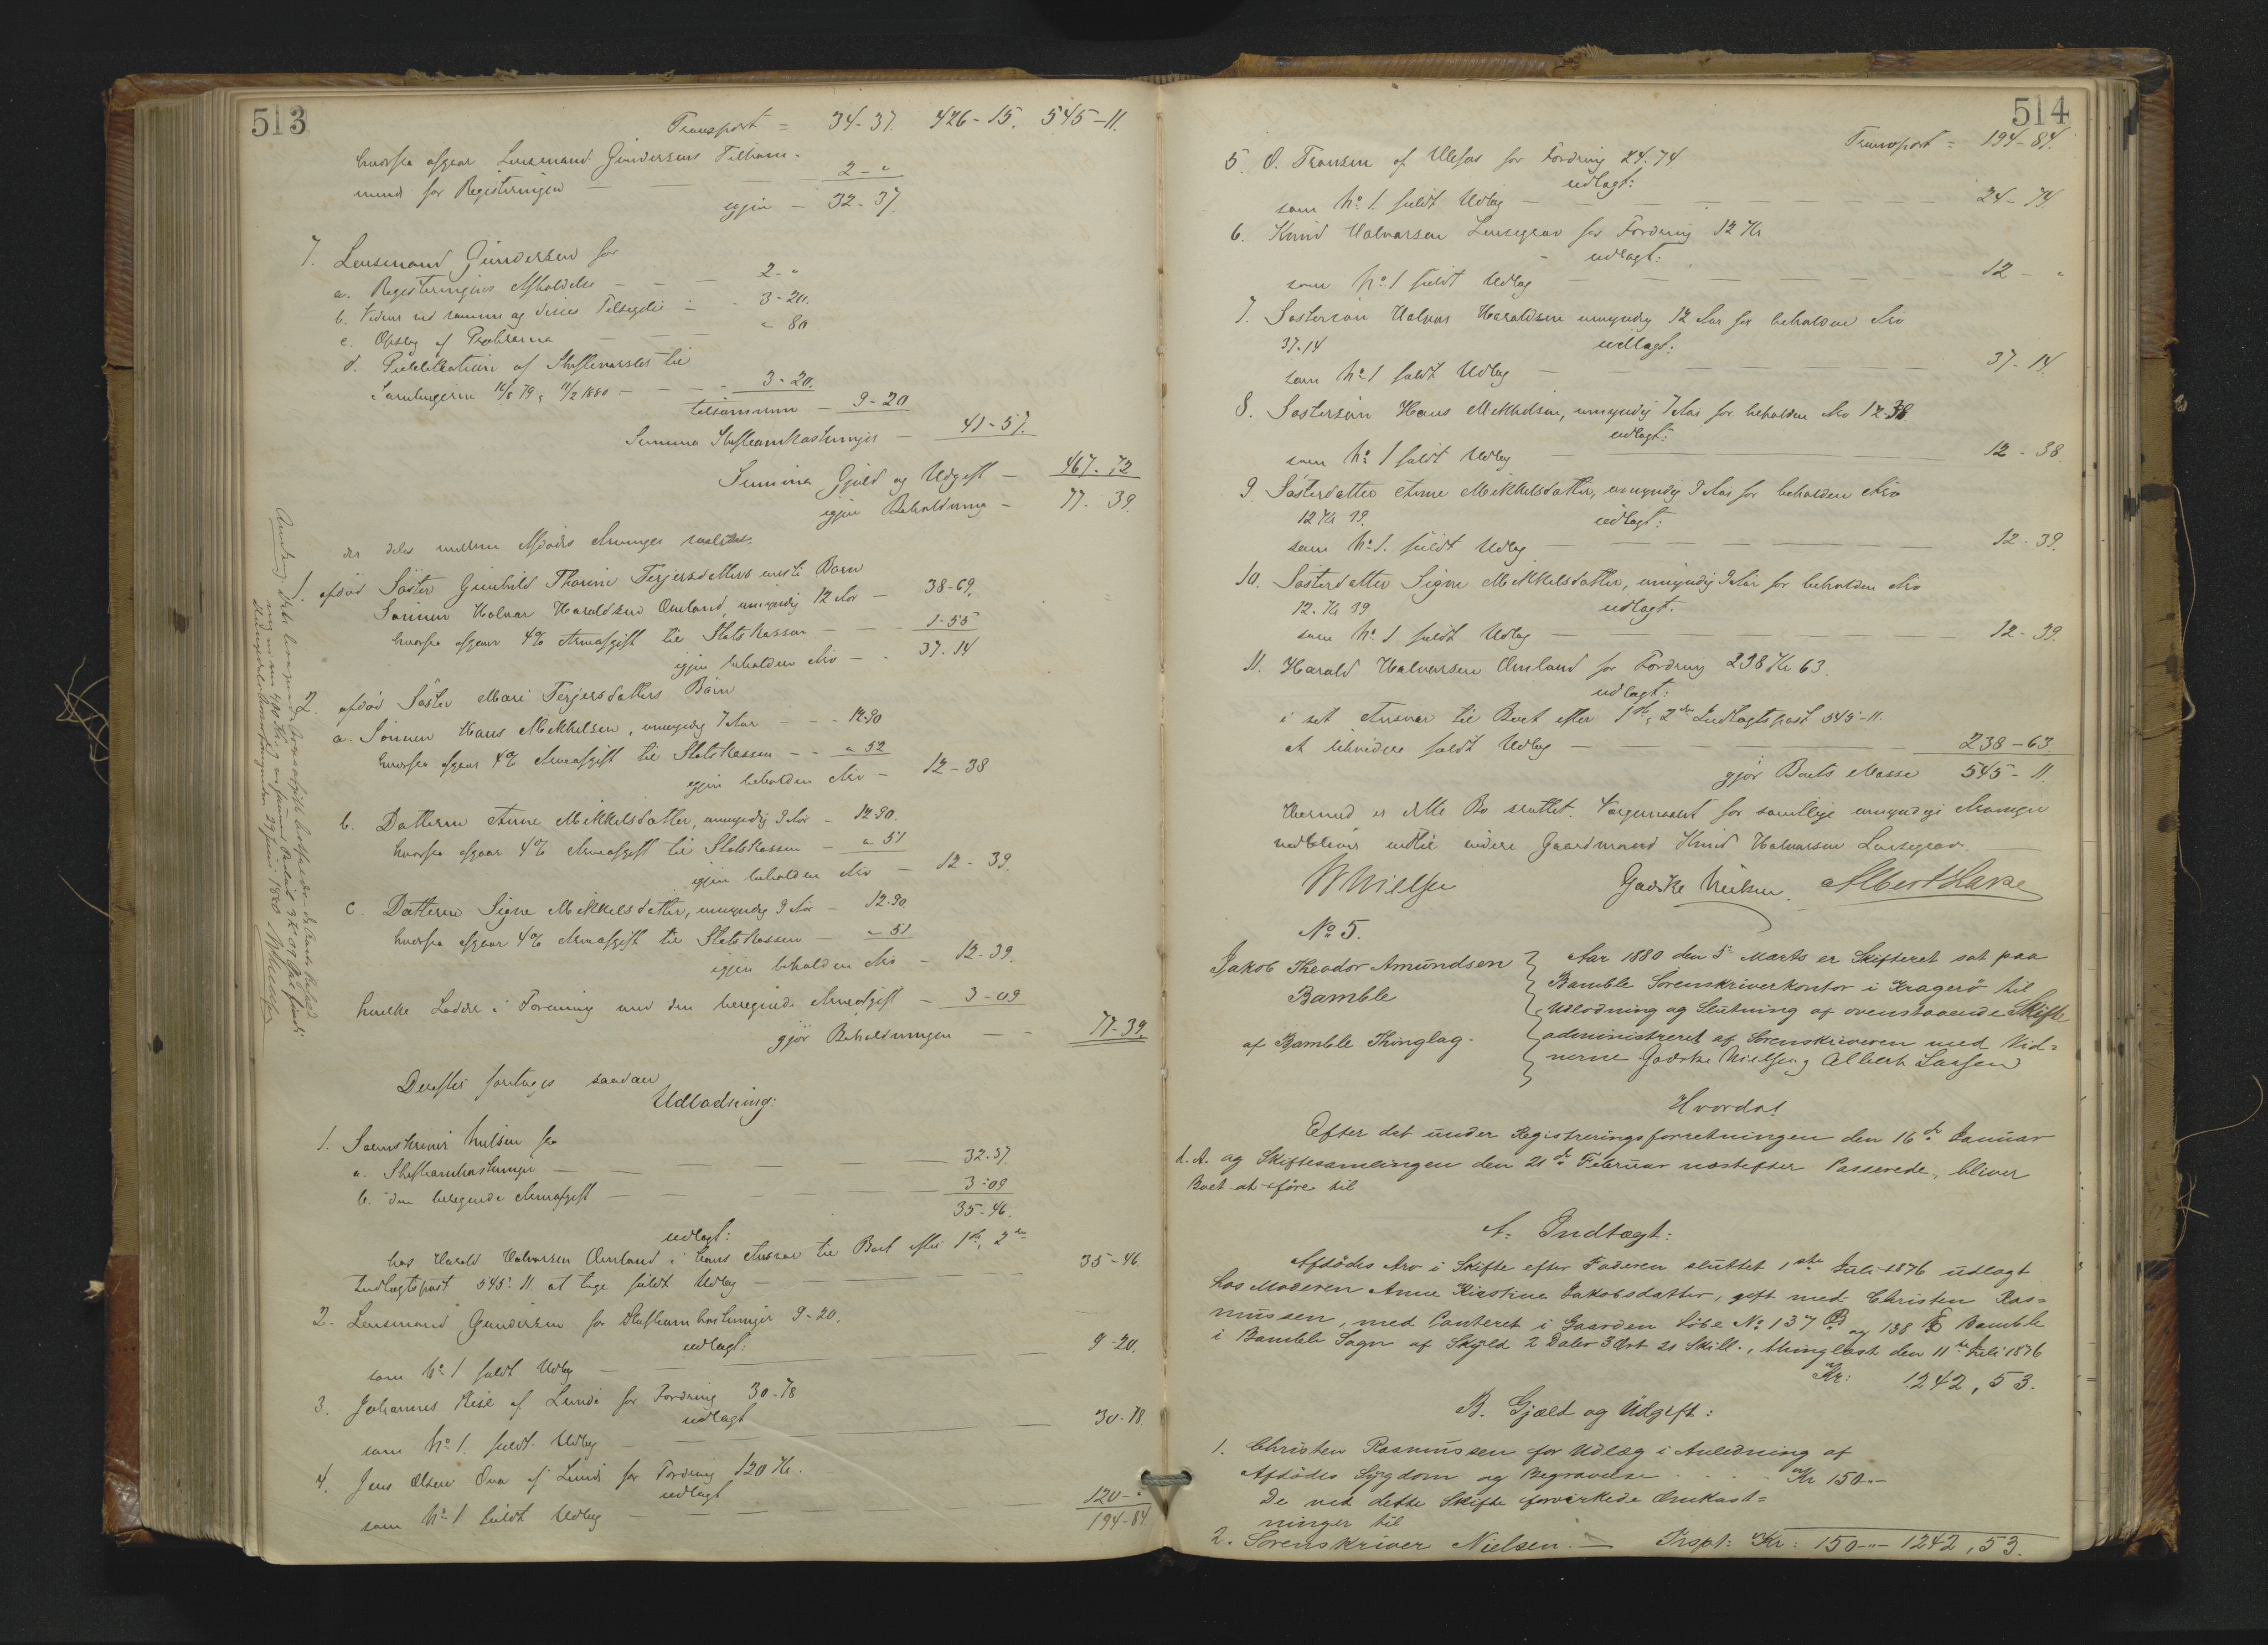 513
Transport = 34-37. 426-15. 545-11.
hvorfra afgaar Lensmand Gundersens Tilkom-
mende for Registeringen — 2-"
igjen — 32-37.
7. Lensmand Gundersen for
a. Registeringens Afholdelse — 2-"
b. Vidner ved samme og disses Tilsigelse — 3-20.
c. Opslag af Proklama — " 80
d. Publikation af Skiftevarsler til
Samlingerne 16/8 79 & 11/2 1880 — 3-20.
tilsammen — 9-20
Summa Skifteomkostninger — 41-57.
Summa Gjæld og Udgift — 467-72
igjen Beholdning — 77-39.
der deles mellem Afdødes Arvinger saaledes:
1. afdød Søster Gunhild Thorine Terjersdatters eneste Barn
Sønnen Halvor Haraldsen Omland, umyndig 12 Aar — 38-69.
hvorfra afgaar 4% Arveafgift til Statskassen — 1-55
igjen beholden Arv — 37-14
2. afdød Søster Mari Terjersdatters Børn
a. Sønnen Hans Mikkelsen, umyndig 7 Aar — 12-90
hvorfra afgaar 4% Arveafgift til Statskassen — " 52
igjen beholden Arv — 12-38
b. Datteren Anne Mikkelsdatter, umyndig 9 Aar — 12-90.
hvorfra afgaar 4% Arveafgift til Statskassen — " 51
igjen beholden Arv — 12-39.
c. Datteren Signe Mikkelsdatter, umyndig 9 Aar — 12-90.
hvorfra afgaar 4% Arveafgift til Statskassen — " 51
igjen beholden Arv — 12-39.
hvilke Lodder i Forening med den beregnede Arveafgift — 3-09
gjør Beholdningen — 77-39.
Derefter foretages saadan
Udlodning:
1. Sorenskriver Nielsen for
a. Skifteomkostninger — 32-37.
b. den beregnede Arveafgift — 3-09
35-46.
udlagt:
hos Harald Halvorsen Omland i hans Ansvar til Boet efter 1ste & 2den
Indtægtspost 545-11 at tage fuldt Udlæg — 35-46.
2. Lensmand Gundersen for Skifteomkostninger 9-20.
udlagt:
som No 1 fuldt Udlæg — 9-20.
3. Johannes Rise af Lunde for Fordring 30-78
udlagt
som No 1. fuldt Udlæg — 30-78.
4. Jens Olsen Ova af Lunde for Fordring 120 Kr.
udlagt
som No 1 fuldt Udlæg — 120-"
194-84
514
Transport = 194-84.
5. O. Fransen af Ulefos for Fordring 24.74.
udlagt:
som No 1. fuldt Udlæg — 24-74
6. Knud Halvorsen Lensegrav for Fordring 12 Kr
udlagt:
som No 1 fuldt Udlæg — 12-"
7. Søstersøn Halvor Haraldsen umyndig 12 Aar for beholden Arv
37-14 udlagt:
som No 1 fuldt Udlæg — 37-14.
8. Søstersøn Hans Mikkelsen, umyndig 7 Aar for beholden Arv 12.38
udlagt:
som No 1 fuldt Udlæg — 12-38.
9. Søsterdatter Anne Mikkelsdatter, umyndig 9 Aar for beholden Arv
12 Kr 39. udlagt:
som No 1. fuldt Udlæg — 12-39.
10. Søsterdatter Signe Mikkelsdatter, umyndig 9 Aar for beholden Arv
12. Kr 39 udlagt.
som No 1 fuldt Udlæg — 12-39.
11. Harald Halvorsen Omland for Fordring 238 Kr 63.
udlagt:
i sit Ansvar til Boet efter 1ste & 2den Indtægtspost 545-11.
at likvidere fuldt Udlæg — 238-63.
gjør Boets Masse 545-11.
Hermed er dette Bo sluttet. Værgemaalet for samtlige umyndige Arvinger
vedbliver indtil videre Gaardmand Knud Halvorsen Lensegrav.
W Nielsen Godske Nielsen. Albert Larse
No 5.
Jakob Theodor Amundsen
Bamble
af Bamble Thinglag.
Aar 1880 den 5te Marts er Skifteret sat paa
Bamble Sorenskriverkontor i Kragerø til
Udlodning og Slutning af ovenstaaende Skifte
administreret af Sorenskriveren med Vid=
nerne Godske Nielsen og Albert Larsen
Hvorda:
Efter det under Registreringsforretningen den 16de Januar
d. A. og Skiftesamlingen den 21de Februar næstefter Passerede, bliver
Boet at føre til
A. Indtægt:
Afdødes Arv i Skifte efter Faderen sluttet 1ste Juli 1876 udlagt
hos Moderen Anne Kirstine Jakobsdatter, gift med Christen Ras=
mussen, med Panteret i Gaarden Løbe No 137 B og 138 E Bamble
i Bamble Sogn af Skyld 2 Daler 3 Ort 21 Skill., thinglæst den 11te Juli 1876
Kr: 1242,53.
B. Gjæld og Udgift:
1. Christen Rasmussen for Udlæg i Anledning af
Afdødes Sygdom og Begravelse . . . Kr 150.-
De ved dette Skifte forvirkede Omkost=
ninger til
2. Sorenskriver Nielsen. — Trspt: Kr: 150-"- 1242,53.